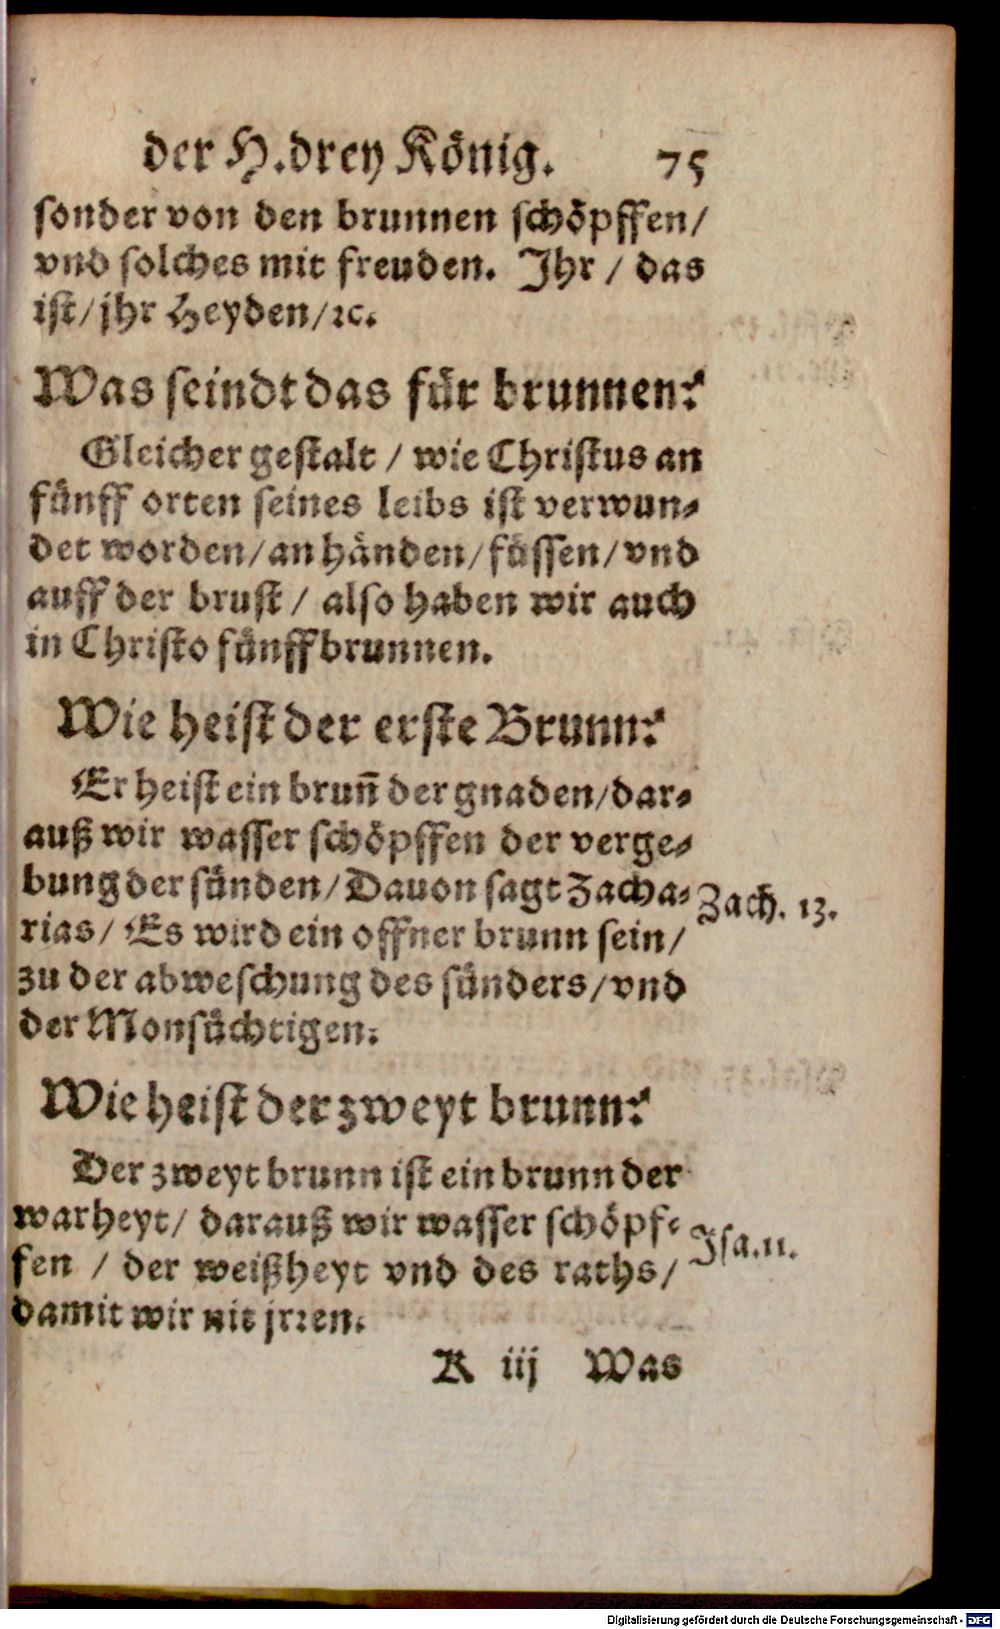 der H. drey König. 75
sonder von den brunnen schöpffen/
vnd solches mit freuden. Jhr / das
ist/ jhr Heyden/ ꝛc.
Was seindt das für brunnen?
Gleicher gestalt / wie Christus an
fünff orten seines leibs ist verwun-
det worden/ an händen/ füssen/ vnd
auff der brust / also haben wir auch
in Christo fünff brunnen.
Wie heist der erste Brunn?
Er heist ein brun̄ der gnaden/ dar-
auß wir wasser schöpffen der verge-
bung der sünden/ Dauon sagt Zacha-
Zach. 13.
rias/ Es wird ein offner brunn sein/
zu der abweschung des sünders/ vnd
der Monsüchtigen.
Wie heist der zweyt brunn?
Der zweyt brunn ist ein brunn der
warheyt/ darauß wir wasser schöpf-
Jsa. 11.
fen / der weißheyt vnd des raths/
damit wir nit jrren.
K iij Was
Digitalisierung gefördert durch die Deutsche Forschungsgemeinschaft - DFG